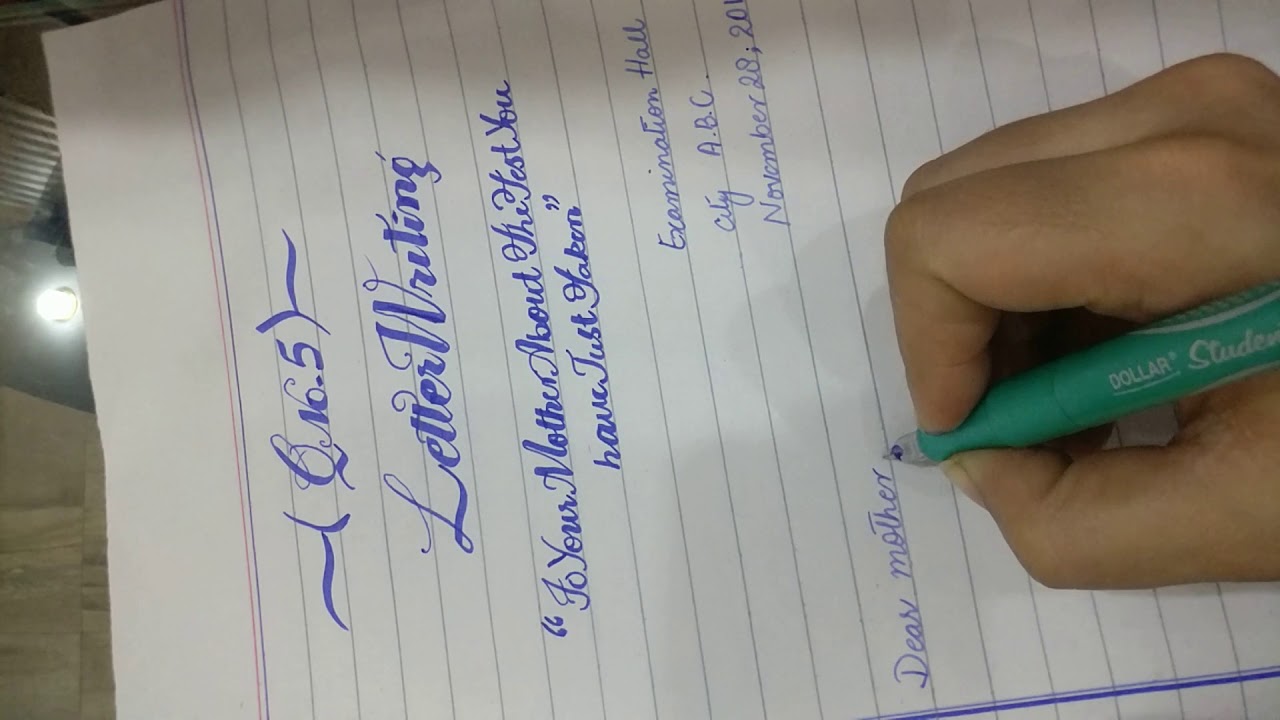 (Q No. 5)
Letter Writing
“To Your Mother About The Test You
have Just Taken”
Examination Hall
City A.B.C.
November 28, 201
Dear mother
DOLLAR® Studen